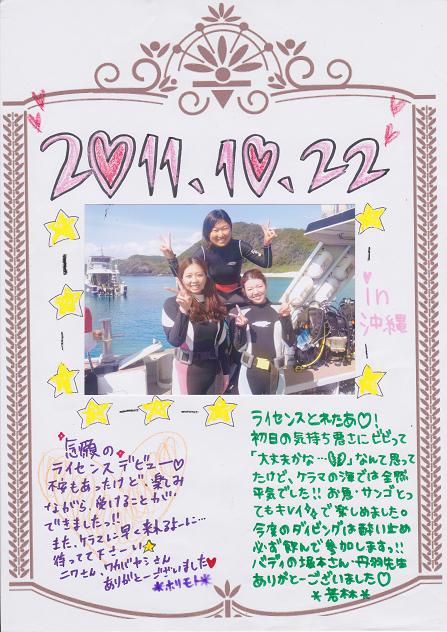 2011.10.22
in
沖縄
念願の
ライセンスデビュー♡
不安もあったけど、楽しみ
ながら、受けることが
できましたっ!!
また、ケラマに早く来れるよーに…
待ってて下さーい☆
ニワさん、ワカバヤシさん
ありがとーございました♥
*ホリモト*
ライセンスとれたぁ♡!
初日の気持ち悪さにビビって
「大丈夫かな…」なんて思って
たけど、ケラマの海では全然
平気でした!!お魚・サンゴとっ
てもキレイで楽しめました
今度のダイビングは酔い止め
必ず飲んで参加しますっ!!
バディの堀本さん・丹羽先生
ありがとーございました♡
*若林*